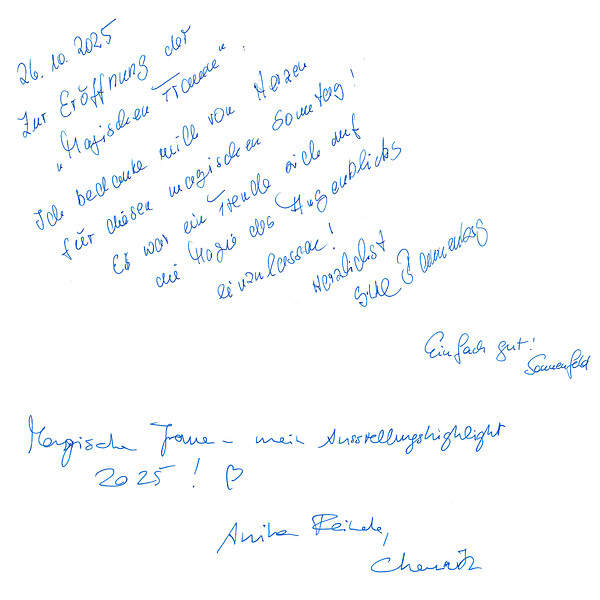 26.10.2025
Zur Eröffnung der
"Magischen Träume".
Ich bedanke mich von Herzen
für diesen magischen Sonntag!
Es war ein Freude sich auf
die Magie des Augenblicks
einzulassen!
Herzlichst
Einfach gut!
Sonnenfeld
Magische Träume – mein Ausstellungshighlight
2025! ♡
Anika
Chemnitz